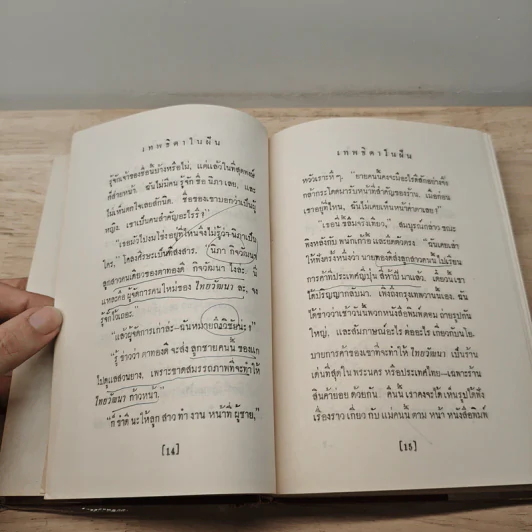 เทพธิดาในฝัน
รู้จักเจ้าของชื่อนี้บ้างหรือไม่, แต่แล้วในที่สุดทุกคน
ก็ส่ายหน้า. ฉันไม่มีคนรู้จักชื่อ นิภา เลย, และ
ไม่เห็นตกใจเลยสักนิด. ชื่อของเขาบอกว่าเป็นผู้
หญิง. เขาเป็นคนสำคัญอะไรรึ?"
"เธอมัวไปมะใช้งอยู่ที่ไหนจึงไม่รู้ว่า นิภาเป็น
ใคร," โฉลงศีรษะเป็นที่สงสาร. "นิภา กิจวัฒนุจ
ลูกสาวคนเดียวของตาทองดี กิจวัฒนา ไงล่ะ. นี่
แหละคือผู้จัดการคนใหม่ของ ไทยวัฒนา ละ, จง
รู้จักไว้เถอะ."
"แล้วผู้จัดการเก่าล่ะ—ฉันหมายถึงวิชัยน่ะ?"
"รู้ ข่าวว่า ตาทองดี จะส่ง ลูกชายคนนั้น ของแก
ไปดูแลสวนยาง, เพราะขาดสมรรถภาพที่จะทำให้
ไทยวัฒนา ก้าวหน้า."
"ก็ ชำติ นะให้ลูก สาว ทำ งาน หน้าที่ ผู้ชาย,"
[14]
เทพธิดาในฝัน
หวัเราะหึ ๆ. "ยายคนนี้คงจะมีอะไรดีสักอย่างจึง
กล้ากระโดดมารับหน้าที่สำคัญของร้าน. เมื่อก่อน
เขาอยู่ที่ไหน, ฉันไม่เคยเห็นหน้าค่าตาเลย?"
"เธอนี่ ซึมจริงเทียว," สมบูรณ์กล่าว ขณะ
ทิ้งหลังกับ พนักเก้าอี้ และยืดตัวตรง. "ฉันเคยเล่า
ให้ฟังครั้งหนึ่งว่า นายทองดีส่งลูกสาวคนนี้ไปเรียน
การค้าที่ประเทศญี่ปุ่น สี่ห้าปี มาแล้ว. เดี๋ยวนี้ เขา
ได้ปริญญากลับมา. เพิ่งถึงกรุงเทพวานนี้เอง. ฉัน
ได้ข่าวว่าเช้าวันนี้พวกหนังสือพิมพ์ตอม ถ่ายรูปกัน
ใหญ่, และสัมภาษณ์อะไร ต่ออะไร เกี่ยวกับนโย-
บายการค้าของเขาที่จะทำให้ ไทยวัฒนา เป็นร้าน
เด่นที่สุดใน พระนคร หรือประเทศไทย—เฉพาะร้าน
สินค้าย่อย ด้วยกัน. คืนนี้ เราคงจะได้ เห็นรูปได้ฟัง
เรื่องราว เกี่ยว กับ แม่คนนั้น ตาม หน้า หนังสือพิมพ์
[15]